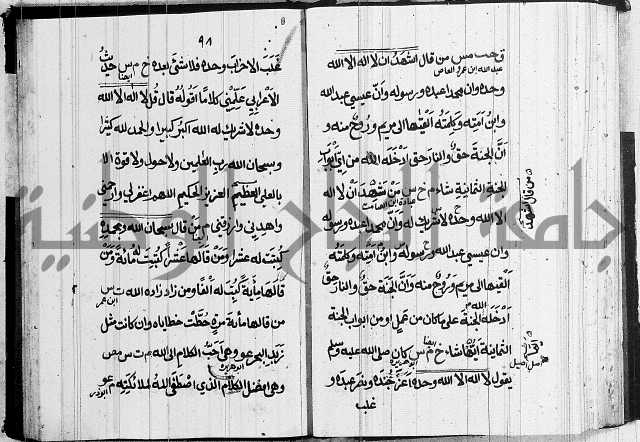 و حب مس من قال اشهد ان لا اله الا الله
عبد الله ابن عمرو العاص
وحده وان محمدا عبده ورسوله وان عيسى عبد الله
وابن امته وكلمته القيها الى مريم وروح منه و
ان الجنة حق والنار حق ادخله الله من اي ابواب
الجنة الثمانية شاء م خ س من شهد ان لا اله
عبادة ابن الصامت
الا الله وحده لا شريك له وان محمدا عبده ورسوله
وان عيسى عبد الله ورسوله وابن امته وكلمته
القيها الى مريم وروح منه وان الجنة حق والنار حق
ادخله الله الجنة على ما كان من عمل او من ابواب الجنة
الثمانية ايها شاء خ م س كان صلى الله عليه وسلم
ابو هريرة
يقول لا اله الا الله وحده اعز جنده ونصر عبده و
غلب
من قال اشهد
٩٨
غلب الاحزاب وحده فلا شيء بعده خ م س حديث
الاعرابي علمني كلاما اقوله قال قل لا اله الا الله
وحده لا شريك له الله اكبر كبيرا والحمد لله كثيرا
وسبحان الله رب العلمين ولا حول ولا قوة الا
بالله العظيم العزيز الحكيم اللهم اغفر لي وارحمني
واهدني وارزقني م من قال سبحان الله وبحمده
كتبت له عشرا ومن قالها عشرا كتبت له مائة ومن
قالها مائة كتبت له الفا ومن زاد زاده الله ت س
ابن عمر
من قالها مائة مرة حطت خطاياه وان كانت مثل
زبد البحر عو وهي احب الكلام الى الله م ت س مص
ابو هريرة
وهي افضل الكلام الذي اصطفى الله لملائكته م عو
ابو ذر
جامعة النجاح الوطنية